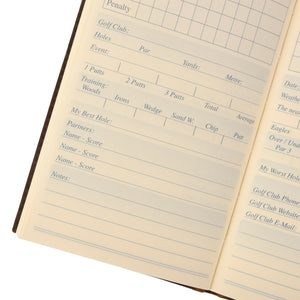 Penalty
Golf Club:
Holes Par Yards: Metre:
Event:
1 Putts 2 Putts 3 Putts Total Average
Training:
Woods Irons Wedge Sand W. Chip Par
My Best Hole:
Partners:
Name - Score
Name - Score
Name - Score
Notes:
Date
Weather
Eagles
Over / Und
Par 3
My Worst Hole
Golf Club Phone
Golf Club Website
Golf Club E-Mail: